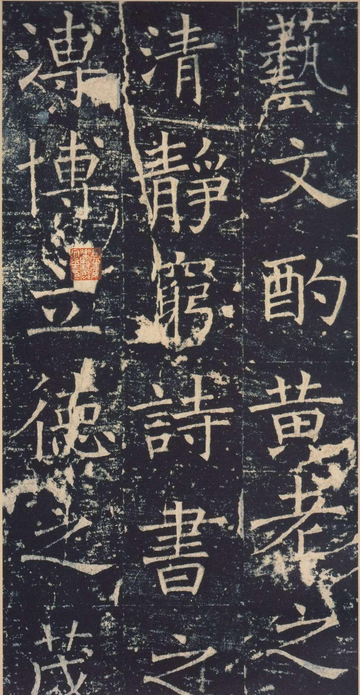 藝文酌黄老之
清靜窮詩書之
溥博立德之茂